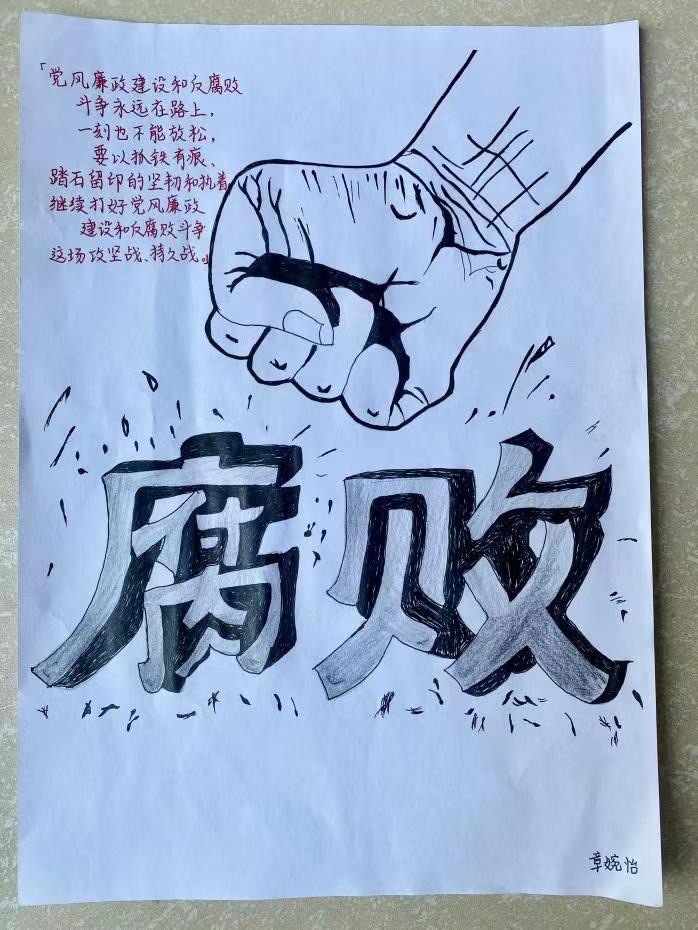 「党风廉政建设和反腐败
斗争永远在路上，
一刻也不能放松，
要以抓铁有痕、
踏石留印的坚韧和执着
继续打好党风廉政
建设和反腐败斗争
这场攻坚战、持久战」
腐败
章婉怡